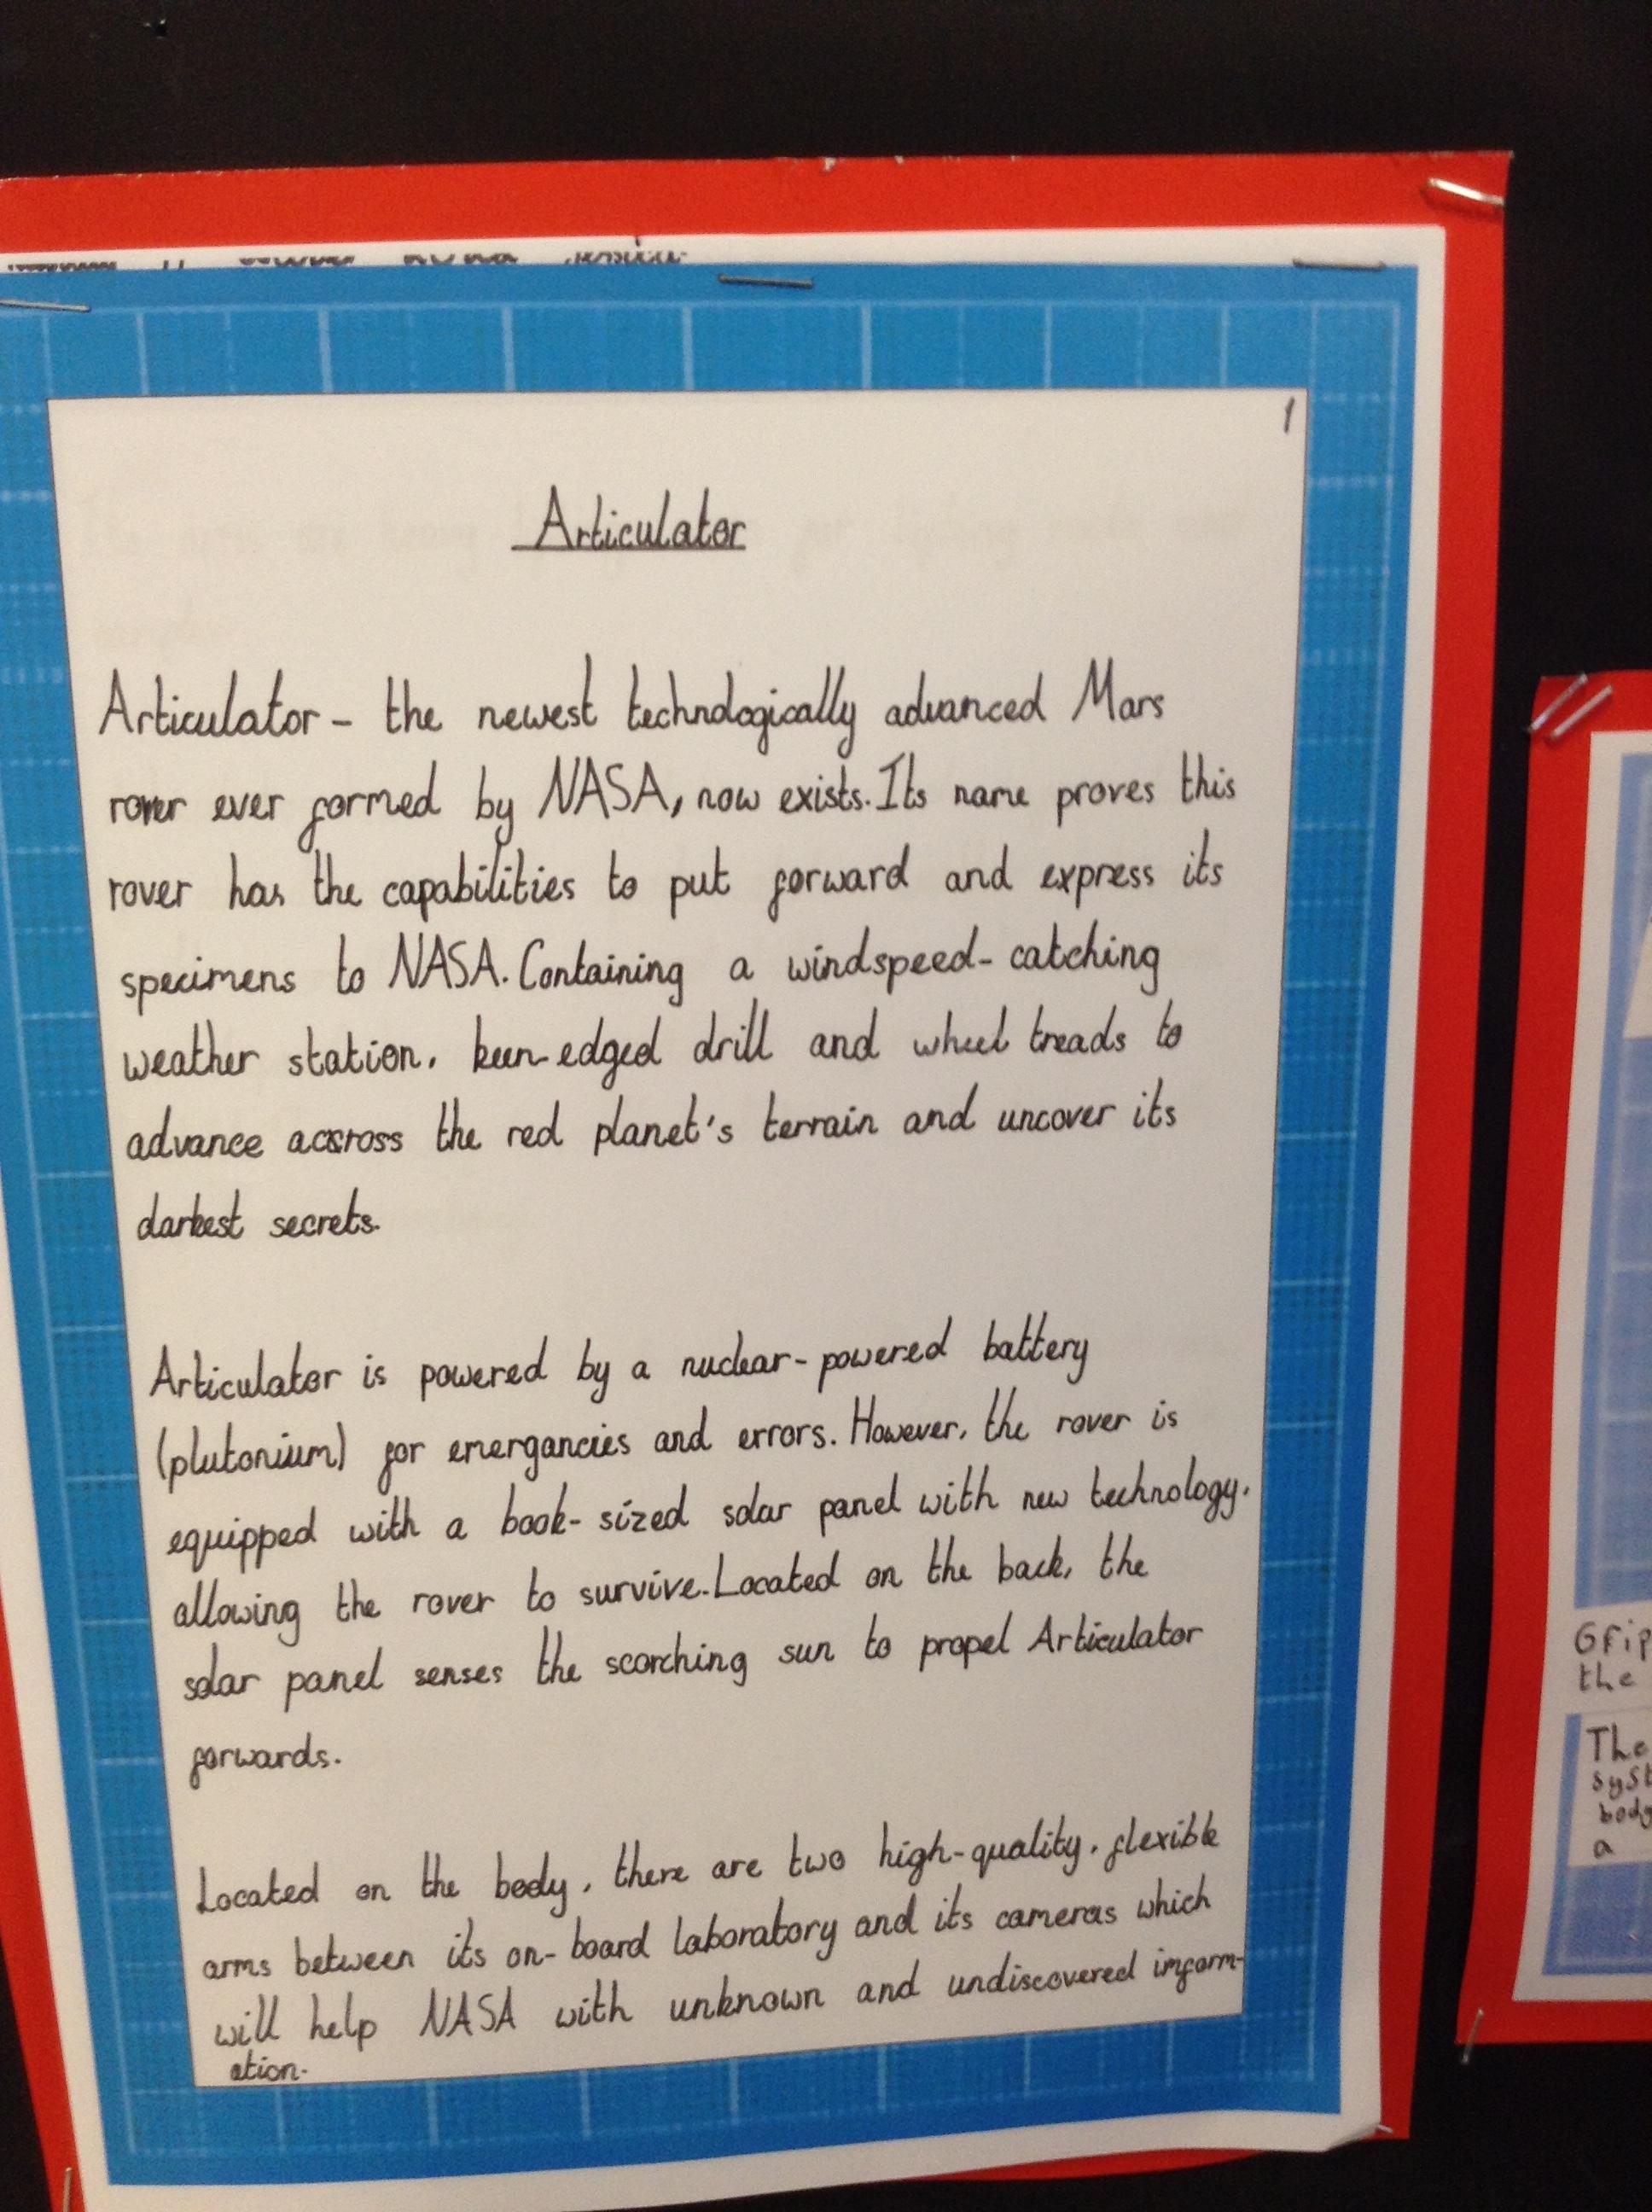 1
Articulator
Articulator - the newest technologically advanced Mars
rover ever formed by NASA, now exists. Its name proves this
rover has the capabilities to put forward and express its
specimens to NASA. Containing a windspeed-catching
weather station, keen-edged drill and wheel treads to
advance accross the red planet's terrain and uncover its
darkest secrets.
Articulator is powered by a nuclear-powered battery
(plutonium) for emergancies and errors. However, the rover is
equipped with a book-sized solar panel with new technology,
allowing the rover to survive. Located on the back, the
solar panel senses the scorching sun to propel Articulator
forwards.
Located on the body, there are two high-quality, flexible
arms between its on-board laboratory and its cameras which
will help NASA with unknown and undiscovered inform-
ation.
Grip
the
The
syst
body
a